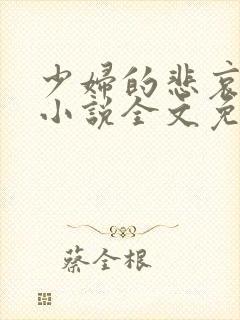 少婦的悲哀
小說全文免
蔡全根